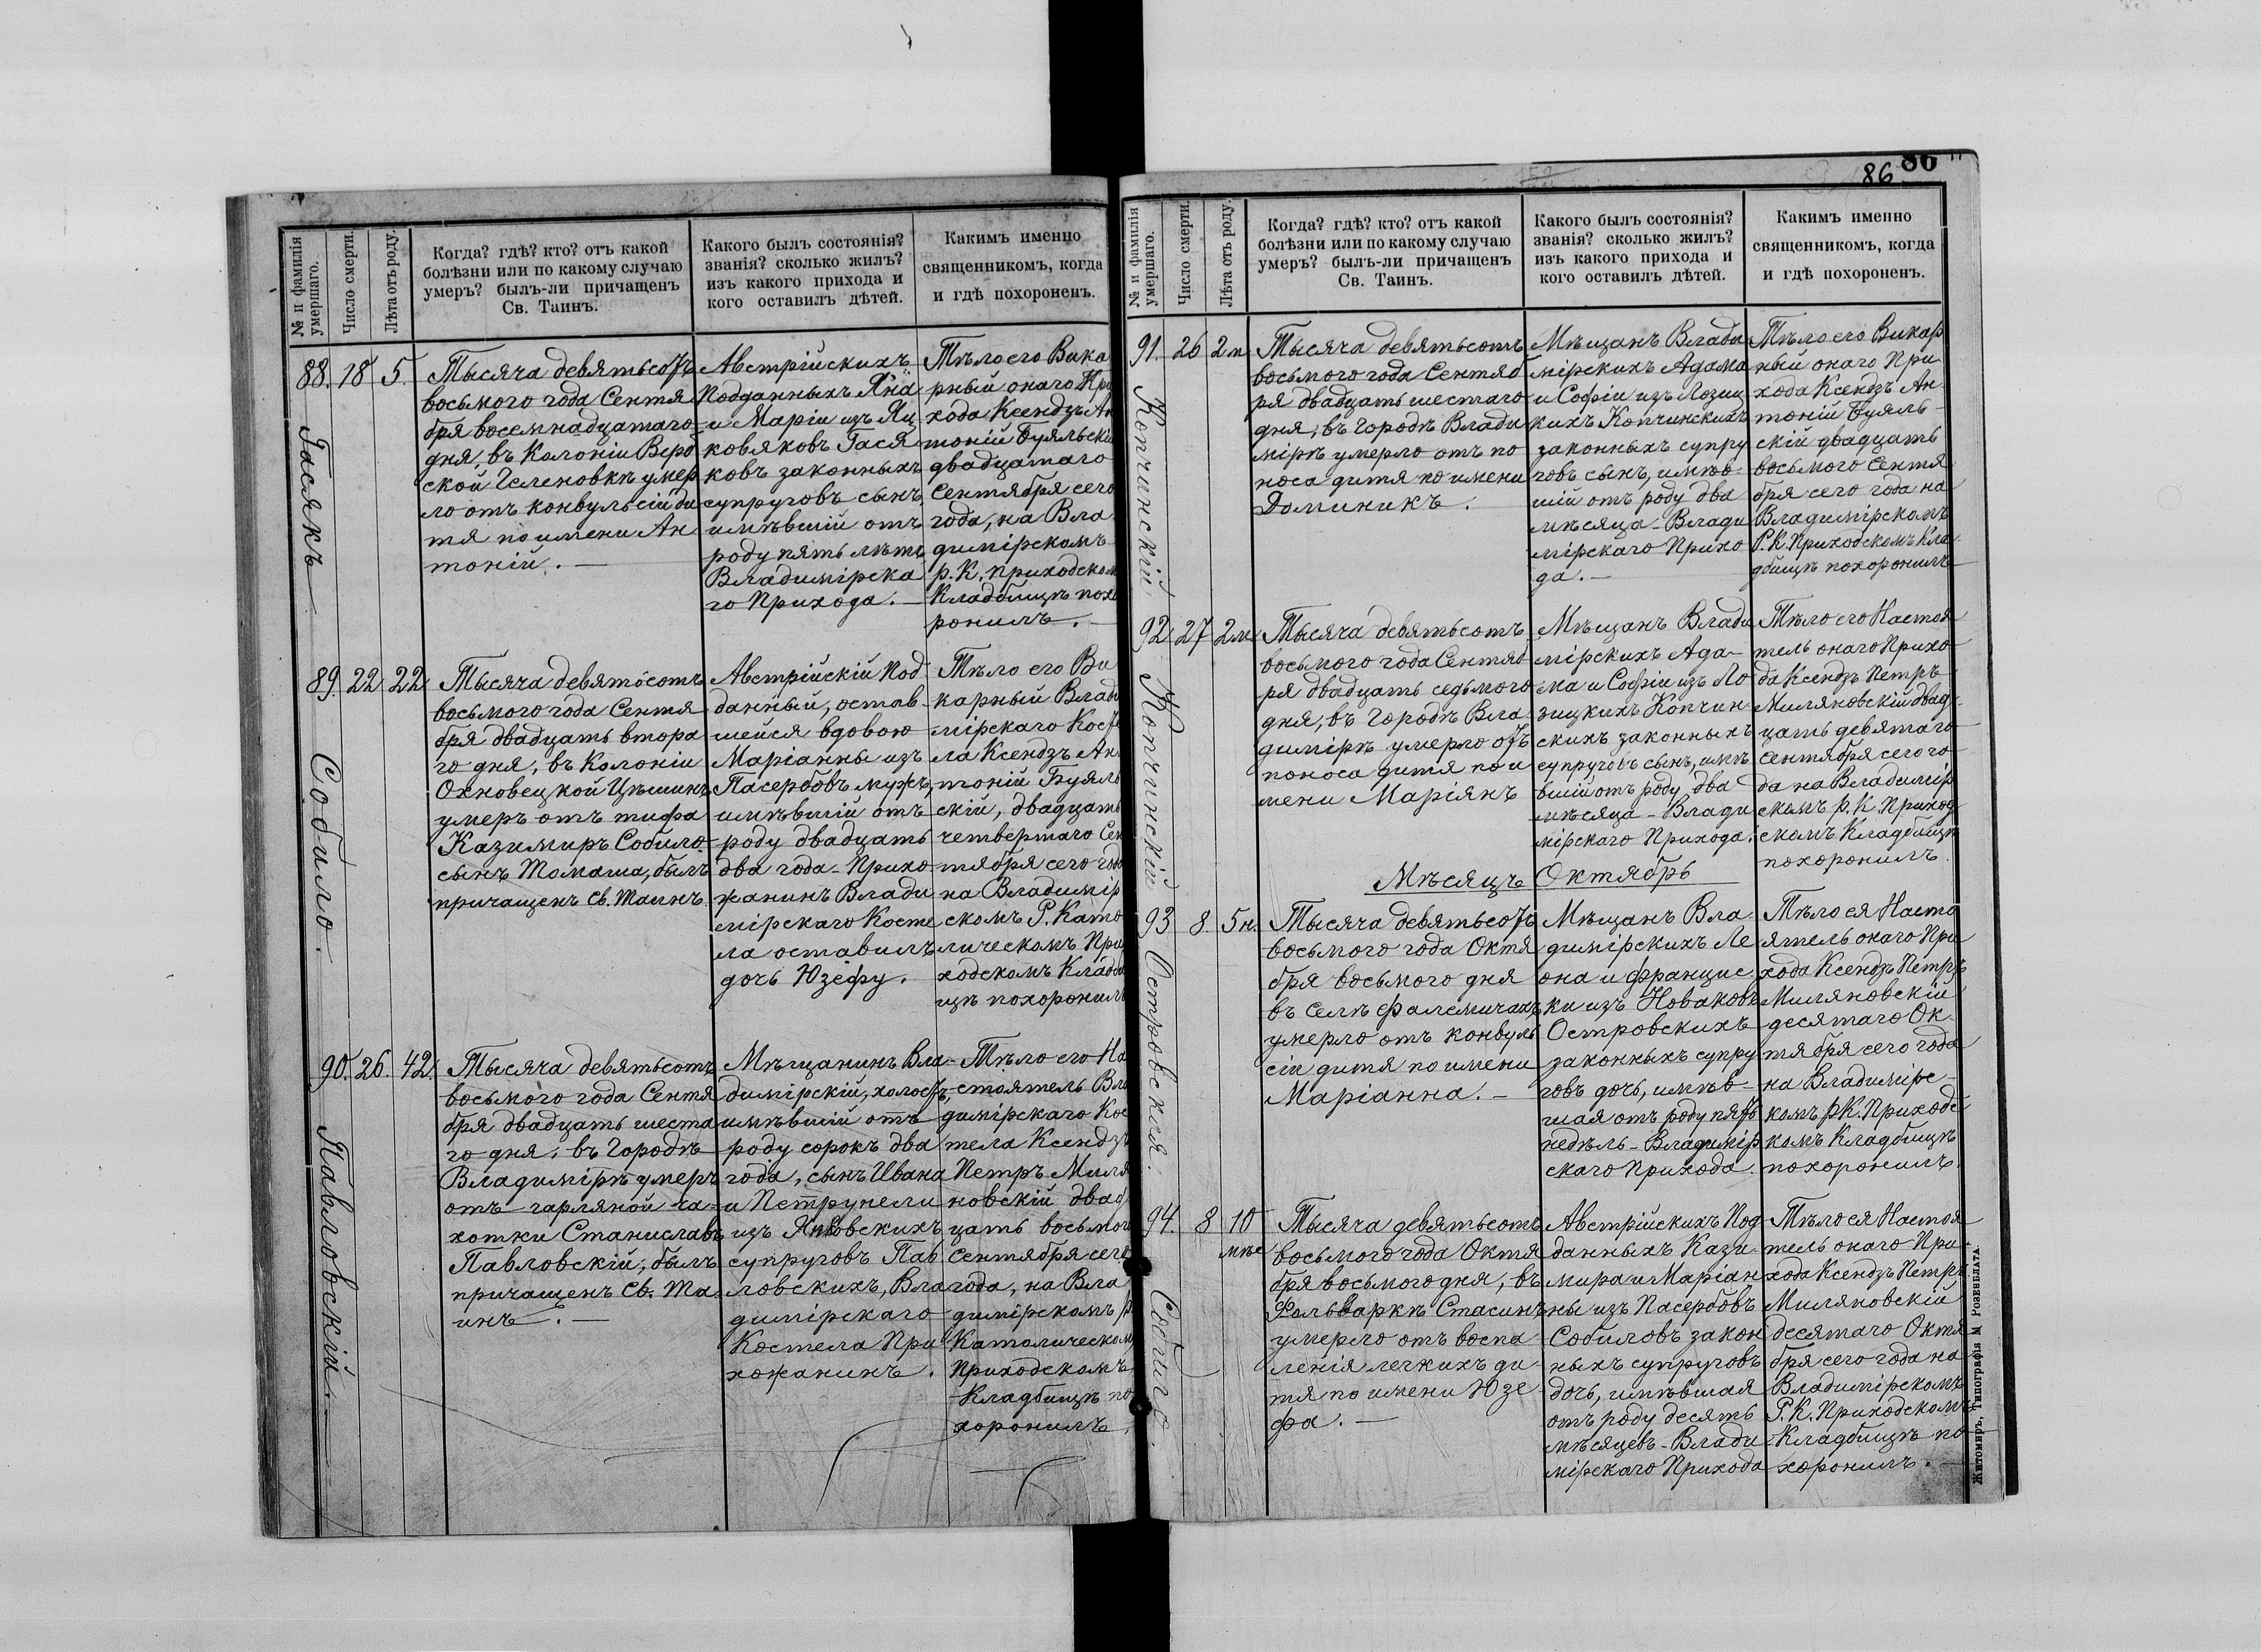 № и фамилія
умершаго.
Число смерти.
Лѣта отъ роду.
Когда? гдѣ? кто? отъ какой
болѣзни или по какому случаю
умеръ? былъ-ли причащенъ
Св. Таинъ.
Какого былъ состоянія?
званія? сколько жилъ?
изъ какого прихода и
кого оставилъ дѣтей.
Какимъ именно
священникомъ, когда
и гдѣ похороненъ.
88. 18 5.
Гасякъ
Тысяча девятьсотъ
восьмого года Сентя
бря восемнадцатаго
дня, въ Колоніи Верб
ской Геленовкѣ умер
ло отъ конвульсій ди
тя по имени Ан
тоній. —
Австрійскихъ
Подданныхъ Яна
и Маріи изъ Яц
ковяковъ Гася
ковъ законныхъ
супруговъ сынъ
имѣвшій отъ
роду пять лѣтъ
Владимірска
го Прихода. —
Тѣло его Вика
рный онаго При
хода Ксендзъ Ан
тоній Буяльскій
двадцатаго
Сентября сего
года, на Вла
димірскомъ
р. К. приходском
Кладбищѣ похо
ронилъ. —
89. 22 22
Собило.
Тысяча девятьсотъ
восьмого года Сентя
бря двадцать втора
го дня, въ Колоніи
Охновецкой Цѣшинъ
умеръ отъ тифа
Казимиръ Собило
сынъ Томаша, былъ
причащенъ Св. Таинъ.
Австрійскій Под
данный, остав
шейся вдовою
Маріанны изъ
Пасербовъ мужъ,
имѣвшій отъ
роду двадцать
два года - Прихо
жанинъ Влади
мірскаго Косте
ла оставилъ
дочь Юзефу.
Тѣло его Ви
карный Влади
мірскаго Косте
ла Ксендзъ Ан
тоній Буяль
скій, двадцать
четвертаго Сен
тября сего года
на Владимір
скомъ Р. Като
лическомъ При
ходскомъ Кладби
щѣ похоронилъ
90. 26. 42.
Павловскій.
Тысяча девятьсотъ
восьмого года Сентя
бря двадцать шеста
го дня, въ Городѣ
Владимірѣ умеръ
отъ гарляной ча
хотки Станиславъ
Павловскій, былъ
причащенъ Св. Та
инъ. —
Мѣщанинъ Вла
димірскій, холостъ,
имѣвшій отъ
роду сорокъ два
года, сынъ Ивана
и Петрунели
изъ Янковскихъ
супруговъ Пав
ловскихъ, Вла
димірскаго
Костела При
хожанинъ.
Тѣло его На
стоятель Вла
димірскаго Кос
тела Ксендзъ
Петръ Миля
новскій двад
цать восьмого
Сентября сего
года, на Вла
димірскомъ р.
Католическомъ
Приходскомъ
Кладбищѣ по
хоронилъ.
86 86
№ и фамилія
умершаго.
Число смерти.
Лѣта отъ роду.
Когда? гдѣ? кто? отъ какой
болѣзни или по какому случаю
умеръ? былъ-ли причащенъ
Св. Таинъ.
Какого былъ состоянія?
званія? сколько жилъ?
изъ какого прихода и
кого оставилъ дѣтей.
Какимъ именно
священникомъ, когда
и гдѣ похороненъ.
91. 26 2 м
Копчинскій
Тысяча девятьсотъ
восьмого года Сентяб
ря двадцать шестаго
дня, въ Городѣ Влади
мірѣ умерло отъ по
носа дитя по имени
Доминикъ.
Мѣщанъ Влади
мірскихъ Адама
и Софіи изъ Лозиц
кихъ Копчинскихъ
законныхъ супру
говъ сынъ, имѣв
шій отъ роду два
мѣсяца - Влади
мірскаго Прихо
да. —
Тѣло его Викар
ный онаго При
хода Ксендзъ Ан
тоній Буяль
скій двадцать
восьмого Сентя
бря сего года на
Владимірскомъ
Р. К. Приходскомъ Кла
дбищѣ похоронилъ
92 27 2 м
Копчинскій
Тысяча девятьсотъ
восьмого года Сентяб
ря двадцать седьмого
дня, въ Городѣ Вла
димірѣ умерло отъ
поноса дитя по и
мени Маріянъ
Мѣщанъ Влади
мірскихъ Ада
ма и Софіи изъ Ло
зицкихъ Копчин
скихъ законныхъ
супруговъ сынъ, имѣ
вшій отъ роду два
мѣсяца - Влади
мірскаго Прихода.
Тѣло его Настоя
тель онаго Прихо
да Ксендзъ Петръ
Миляновскій двад
цать девятаго
Сентября сего го
да на Владимір
скомъ р. К. Приход
скомъ Кладбищѣ
похоронилъ.
Мѣсяцъ Октябрь
93 8. 5 н.
Островская.
Тысяча девятьсотъ
восьмого года Октя
бря восьмого дня
въ селѣ Фалемичахъ
умерло отъ конвуль
сіи дитя по имени
Маріанна. —
Мѣщанъ Вла
димірскихъ Ле
она и Францис
ки изъ Новаковъ
Островскихъ
законныхъ супру
говъ дочь, имѣв
шая отъ роду пять
недѣль - Владимір
скаго Прихода.
Тѣло ея Насто
ятель онаго При
хода Ксендзъ Петръ
Миляновскій
десятаго Ок
тября сего года
на Владимірс
комъ р К. Приходс
комъ Кладбищѣ
похоронилъ.
94. 8 10
мѣс
Собило.
Тысяча девятьсотъ
восьмого года Октя
бря восьмого дня, въ
Фольваркѣ Стасинъ
умерло отъ воспа
ленія легкихъ ди
тя по имени Юзе
фа. —
Австрійскихъ Под
данныхъ Кази
мира и Маріан
ны изъ Пасербовъ
Собиловъ закон
ныхъ супруговъ
дочь, имѣвшая
отъ роду десять
мѣсяцевъ - Влади
мірскаго Прихода
Тѣло ея Настоя
тель онаго При
хода Ксендзъ Петръ
Миляновскій
десятаго Октя
бря сего года на
Владимірскомъ
Р. К. Приходскомъ
Кладбищѣ по
хоронилъ. —
Житомиръ, Типографія М. Розенблата.